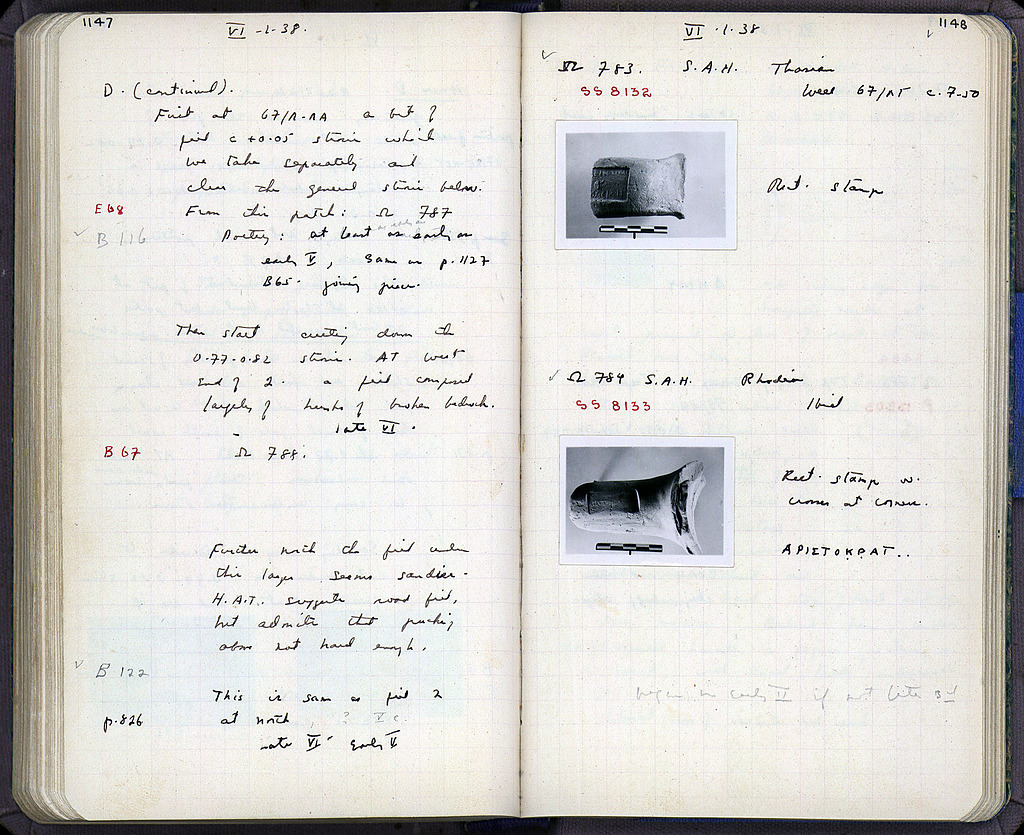 1147
VI -1-38.
D. (continued).
First at 67/Λ-ΛΑ a bit of
fill c +0.05 strosis which
we take separately and
clear the general strosis below.
E68
From this patch: Ω 787
B 116
Pottery: at least as early as
early V, same as p. 1127
B65. joining piece.
Then start cutting down the
0.77-0.82 strosis. AT west
end of 2. a fill composed
largely of hunks of broken bedrock.
late VI.
B 67
Ω 788.
Further north the fill under
this layer seems sandier.
H.A.T. suggests road fill,
but admits that packing
above not hard enough.
B 122
This is same as fill 2
p. 826
at north, ? V c.
late VI - early V
1148
VI .1.38
Ω 783. S.A.H. Thasian
SS 8132
Well 67/ΛΓ c. 7.50
Rect. stamp
Ω 784 S.A.H. Rhodian
SS 8133
Ibid
Rect. stamp w.
crosses at corners.
ΑΡΙΣΤΟΚΡΑΤ..
early II if not late 3rd